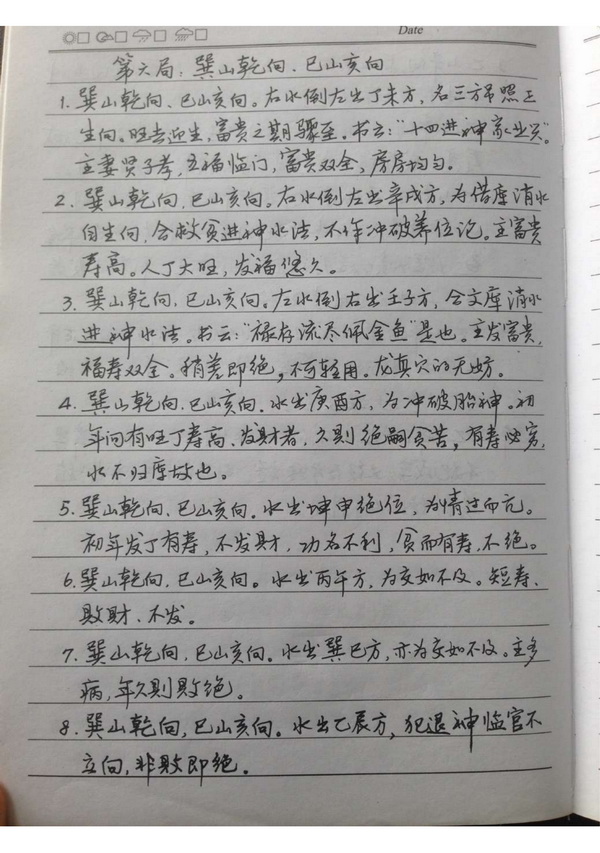 Date
第六局：巽山乾向、巳山亥向
1. 巽山乾向、巳山亥向。右水倒左出丁未方，名三方吊照正
生向。旺去迎生，富贵之期骤至。书云："十四进神家业兴"。
主妻贤子孝，五福临门，富贵双全，房房均匀。
2. 巽山乾向，巳山亥向。右水倒左出辛戌方，为借库消水
自生向，合救贫进神水法，不作冲破养位论。主富贵
寿高。人丁大旺，发福悠久。
3. 巽山乾向，巳山亥向。左水倒右出壬子方，合文库消水
进神水法。书云："禄存流尽佩金鱼"是也。主发富贵，
福寿双全。稍差即绝，不可轻用。龙真穴的无妨。
4. 巽山乾向、巳山亥向。水出庚酉方，为冲破胎神。初
年间有旺丁寿高、发财者，久则绝嗣贫苦，有寿必穷，
水不归库故也。
5. 巽山乾向、巳山亥向。水出坤申绝位，为情过而亢。
初年发丁有寿，不发财，功名不利，贫而有寿，不绝。
6. 巽山乾向、巳山亥向。水出丙午方，为交如不及。短寿、
败财、不发。
7. 巽山乾向，巳山亥向。水出巽巳方，亦为交如不及。主多
病，年久则败绝。
8. 巽山乾向，巳山亥向。水出乙辰方，犯退神临官不
立向，非败即绝。